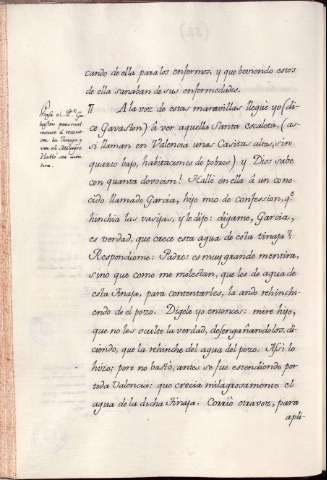 cando de ella para los enfermos, y que beviendo estos
de ella sanaban de sus enfermedades.
Pasó el Pe. Ga-
baston personal-
mente à recono-
cer la Tinaja, y
A la voz de estas maravillas llegue yo (di-
ce Gavaston) à ver aquella Santa Escaleta, (as-
si llaman en Valencia unas Casitas altas, sin
quarto bajo, habitaciones de pobres) y Dios sabe
con quanta devocion! Hallè en ella à un cono-
cido llamado Garcia, hijo mio de confession, qe.
hinchia las vasijas, y le dije: digame, Garcia,
es verdad, que crece esta agua de esta tinaja?
Respondiome: Padre: es muy grande mentira,
sino que como me molestan, que les dè agua de
esta Tinaja, para contentarles, la ando rehinchi-
endo de el pozo. Digole yo entonces: mire hijo,
que no les oculte la verdad, desengañandolos, di-
ciendo, que la rehinche del agua del pozo. Assi lo
hizo; pero no bastò, antes se fue estendiendo por
toda Valencia: que crecia milagrosamente el
agua de la dicha Tinaja. Corriò otra voz, para
apli-